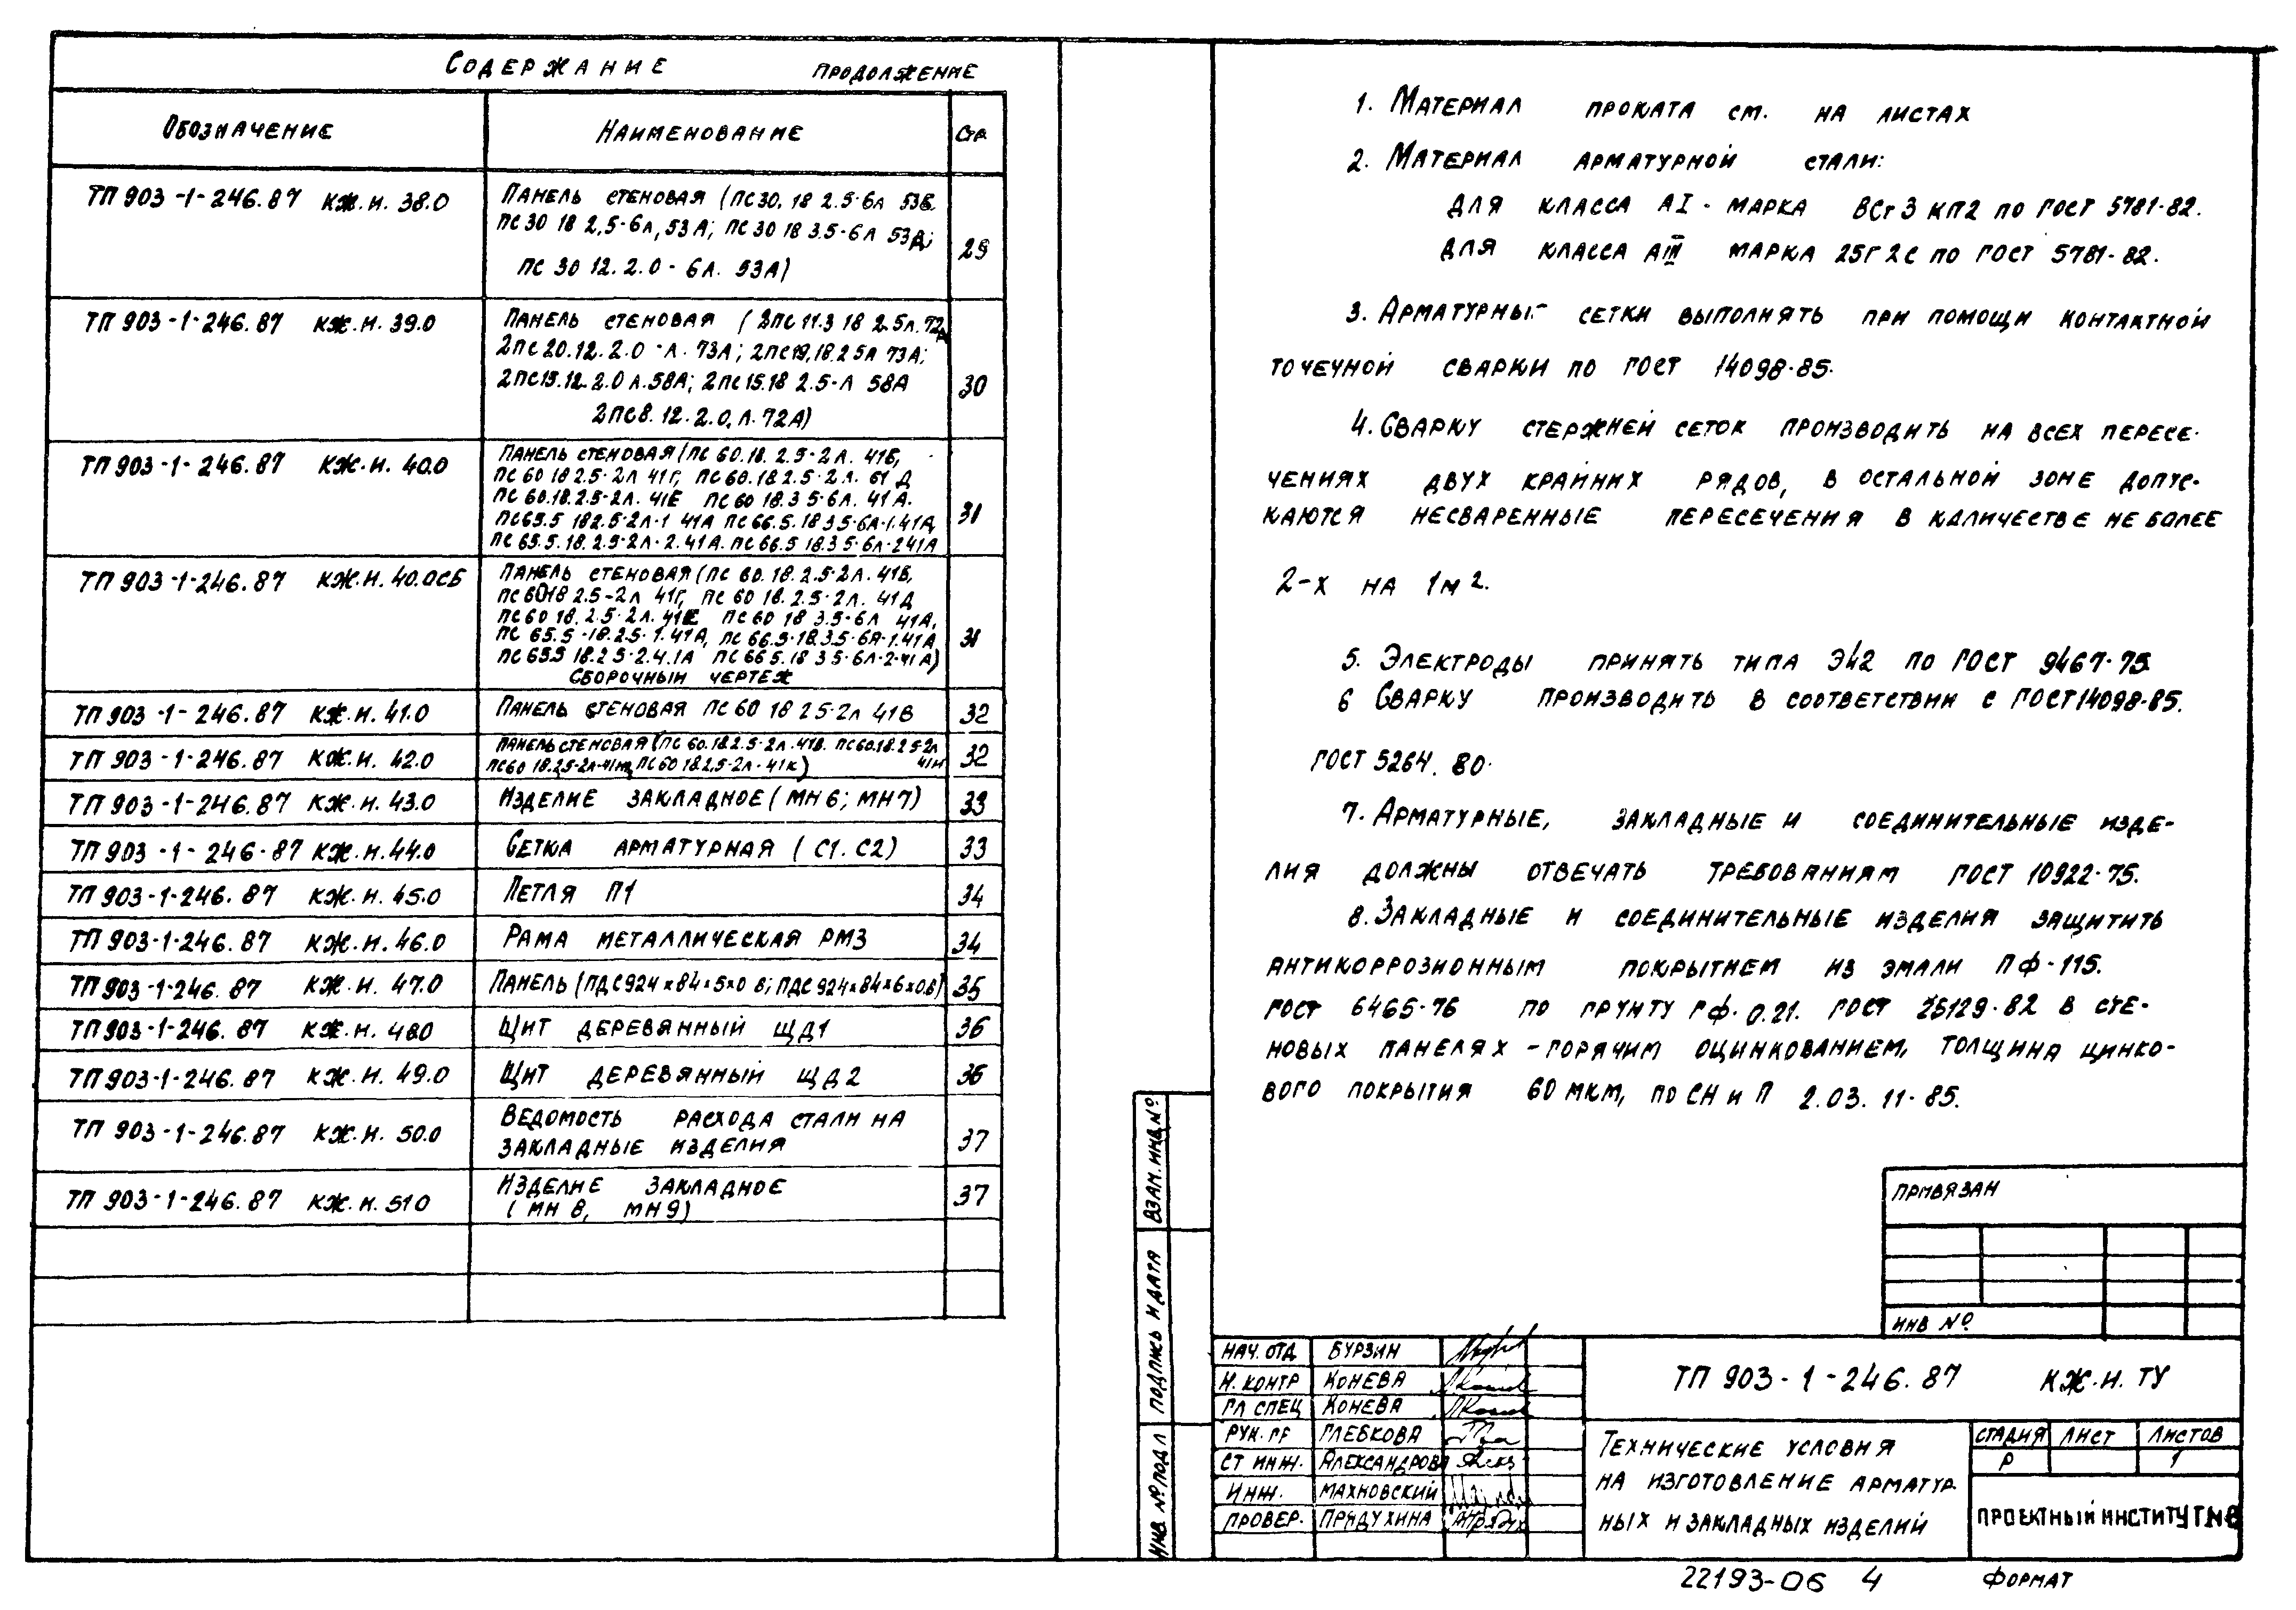 Содержание продолжение
Обозначение Наименование Стр.
ТП 903-1-246.87 КЖ.И. 38.0
Панель стеновая (ПС30. 18 2.5-6л 53Б.
ПС 30 18 2,5-6л, 53А; ПС 30 18 3.5-6л 53Д;
ПС 30 12. 2.0 - 6л. 53А)
29
ТП 903-1-246.87 КЖ.И. 39.0
Панель стеновая (2ПС 11.3 18 2.5л. 72А
2ПС 20.12. 2.0 -л. 73А; 2ПС19.18.2 5л 73А;
2ПС15.12. 2.0 л.58А; 2ПС15.18 2.5-л 58А
2ПС8. 12. 2.0. л. 72А)
30
ТП 903-1-246.87 КЖ.И. 40.0
Панель стеновая (ПС 60.18. 2.5-2л. 41Б,
ПС 60 18 2.5-2л 41Г, ПС 60.18 2.5-2л. 61 Д
ПС 60.18.2.5-2л. 41Е ПС 60 18.3 5-6л. 41А.
ПС65.5 18 2.5-2л-1 41А ПС 66.5. 18 3 5-6л-1.41А,
ПС 65.5. 18. 2.5-2л-2.41А. ПС 66.5 18.3 5-6л-2 41А
31
ТП 903-1-246.87 КЖ.И. 40.0СБ
Панель стеновая (ПС 60. 18. 2.5-2л. 41Б,
ПС 6018 2.5-2л 41Г, ПС 60 18. 2.5-2л. 41Д
ПС 60 18. 2.5-2л. 41Е ПС 60 18 3.5-6л 41А,
ПС 65.5 -18. 2.5- 1.41А, ПС 66.5-18.3.5-6л-1.41А
ПС 65.5 18.2 5-2.4.1А ПС 66 5. 18 3 5-6л-2-41А)
сборочный чертеж
31
ТП 903-1-246.87 КЖ.И. 41.0 Панель стеновая ПС 60 18 2 5-2л 41В 32
ТП 903-1-246.87 КЖ.И. 42.0
Панель стеновая (ПС 60.18.2.5-2л.41В. ПС60.18.2 5-2л
ПС60 18.2.5-2л-41 ПС 60 18.2.5-2л- 41К) 41И
32
ТП 903-1-246.87 КЖ.И. 43.0 Изделие закладное (МН6; МН7) 33
ТП 903-1-246.87 КЖ.И. 44.0 Сетка арматурная (С1. С2) 33
ТП 903-1-246.87 КЖ.И. 45.0 Петля П1 34
ТП 903-1-246.87 КЖ.И. 46.0 Рама металлическая РМ3 34
ТП 903-1-246.87 КЖ.И. 47.0 Панель (ПДС924×84×5×0 8; ПДС 924×84×6×0.8) 35
ТП 903-1-246.87 КЖ.И. 48.0 Щит деревянный ЩД1 36
ТП 903-1-246.87 КЖ.И. 49.0 Щит деревянный ЩД2 36
ТП 903-1-246.87 КЖ.И. 50.0
Ведомость расхода стали на
закладные изделия
37
ТП 903-1-246.87 КЖ.И. 51 0
Изделие закладное
(МН 8, МН9)
37
1. Материал проката см. на листах
2. Материал арматурной стали:
для класса АI - марка ВСт 3 кп2 по ГОСТ 5781-82.
для класса АIII марка 25Г2С по ГОСТ 5781-82.
3. Арматурные сетки выполнять при помощи контактной
точечной сварки по ГОСТ 14098-85.
4. Сварку стержней сеток производить на всех пересе-
чениях двух крайних рядов, в остальной зоне допус-
каются несваренные пересечения в количестве не более
2-х на 1м 2.
5. Электроды принять типа Э42 по ГОСТ 9467-75
6 Сварку производить в соответствии с ГОСТ14098-85.
ГОСТ 5264. 80.
7. Арматурные, закладные и соединительные изде-
лия должны отвечать требованиям ГОСТ 10922-75.
8. Закладные и соединительные изделия защитить
антикоррозионным покрытием из эмали ПФ-115.
ГОСТ 6465-76 по грунту ГФ-0.21. ГОСТ 25129-82 в сте-
новых панелях - горячим оцинкованием, толщина цинко-
вого покрытия 60 мкм, по СН и П 2.03. 11-85.
Взам. инв. №
Подпись и дата
Инв № подл
Привязан
Инв №
Нач. отд Бурзин
Н. контр Конева
Гл спец Конева
Рук. гр Глебкова
Ст инж. Александрова
Инж. Махновский
Провер. Придухина
ТП 903-1-246.87 КЖ.И. ТУ
Технические условия
на изготовление арматур
ных и закладных изделий
Стадия Лист Листов
Р 1
Проектный институт №
22193-06 4 Формат